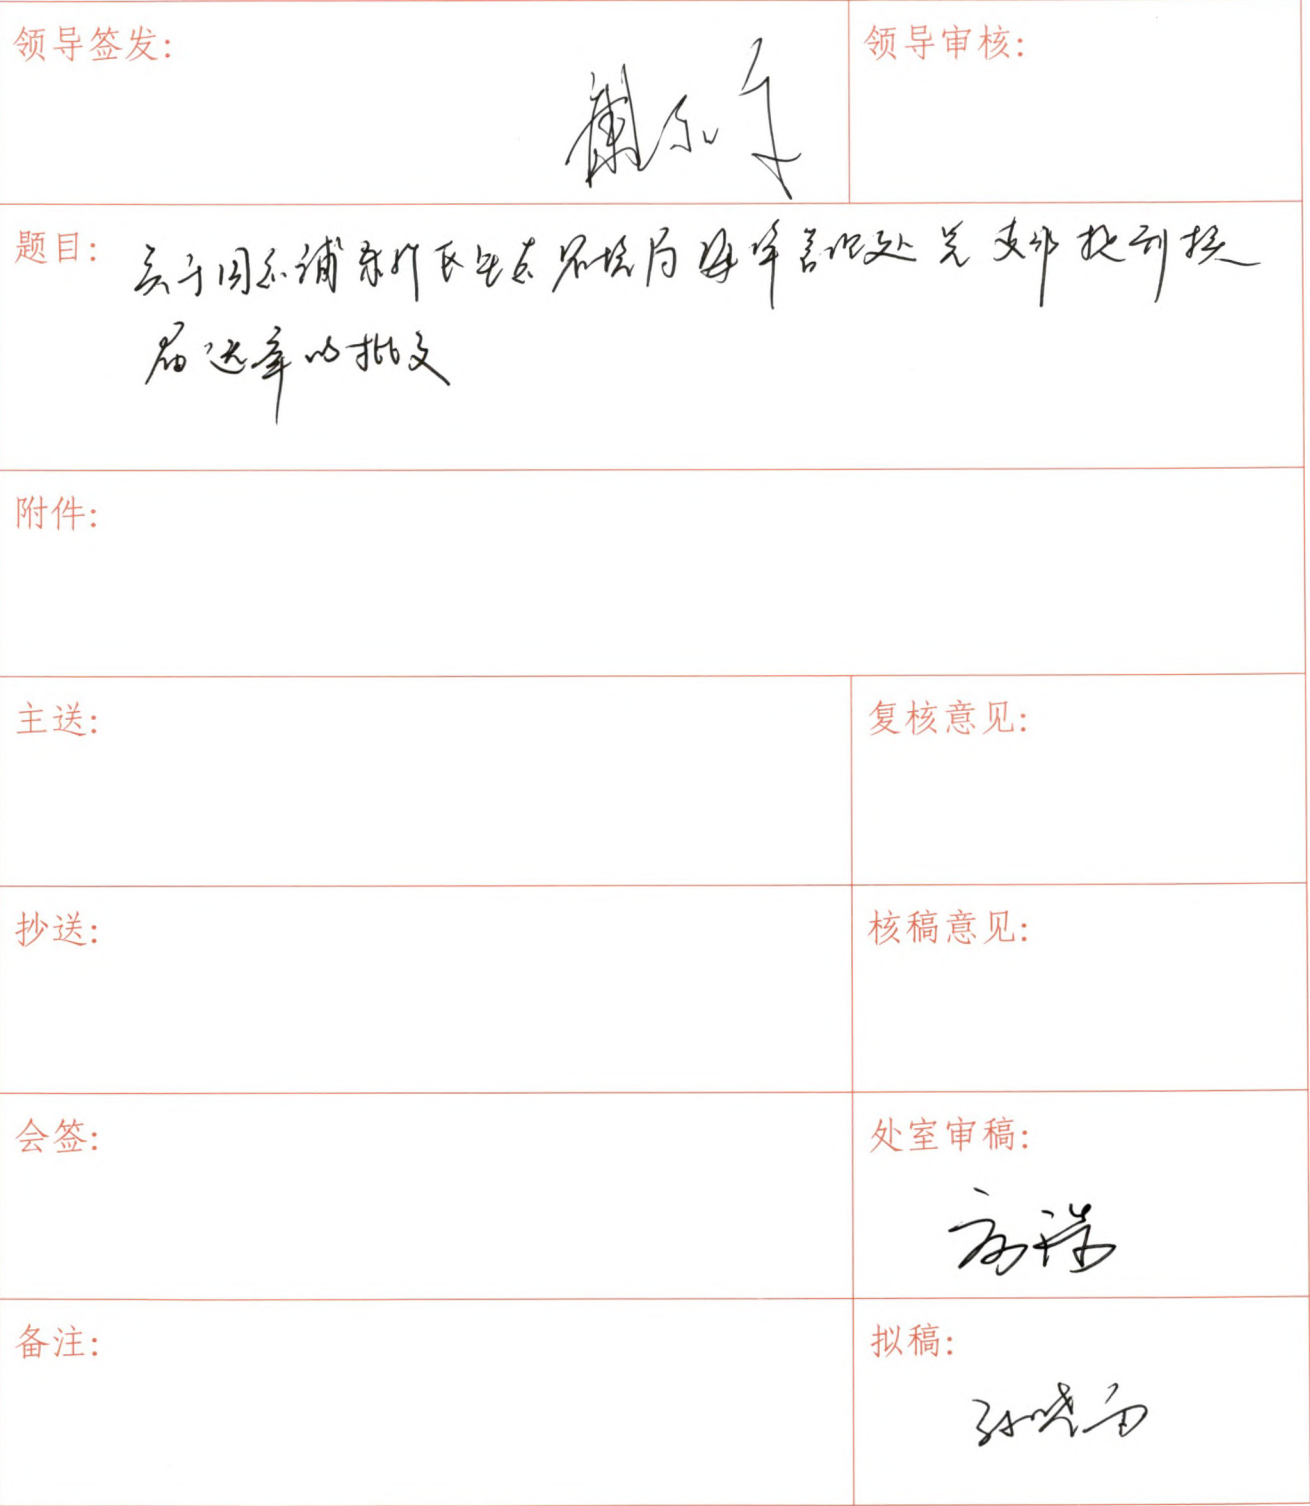 领导签发:
领导审核:
题目: 关于同意浦东新区生态环境局 党支部 换
届选举的批文
附件:
主送:
复核意见:
抄送:
核稿意见:
会签:
处室审稿:
备注:
拟稿:
孙晓雨